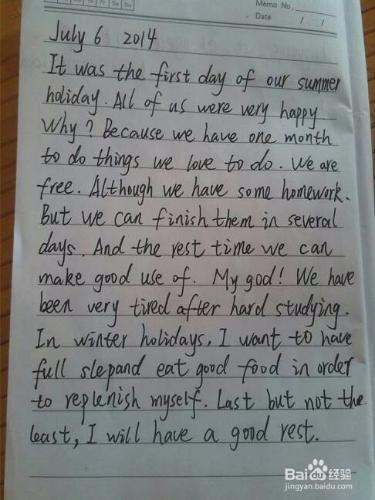 Memo No.
Date / /
July 6 2014
It was the first day of our summer
holiday. All of us were very happy
Why? Because we have one month
to do things we love to do. We are
free. Although we have some homework.
But we can finish them in several
days. And the rest time we can
make good use of. My god! We have
been very tired after hard studying.
In winter holidays, I want to have
full slepand eat good food in order
to replenish myself. Last but not the
least, I will have a good rest.
Baidu 经验
jingyan.baidu.com